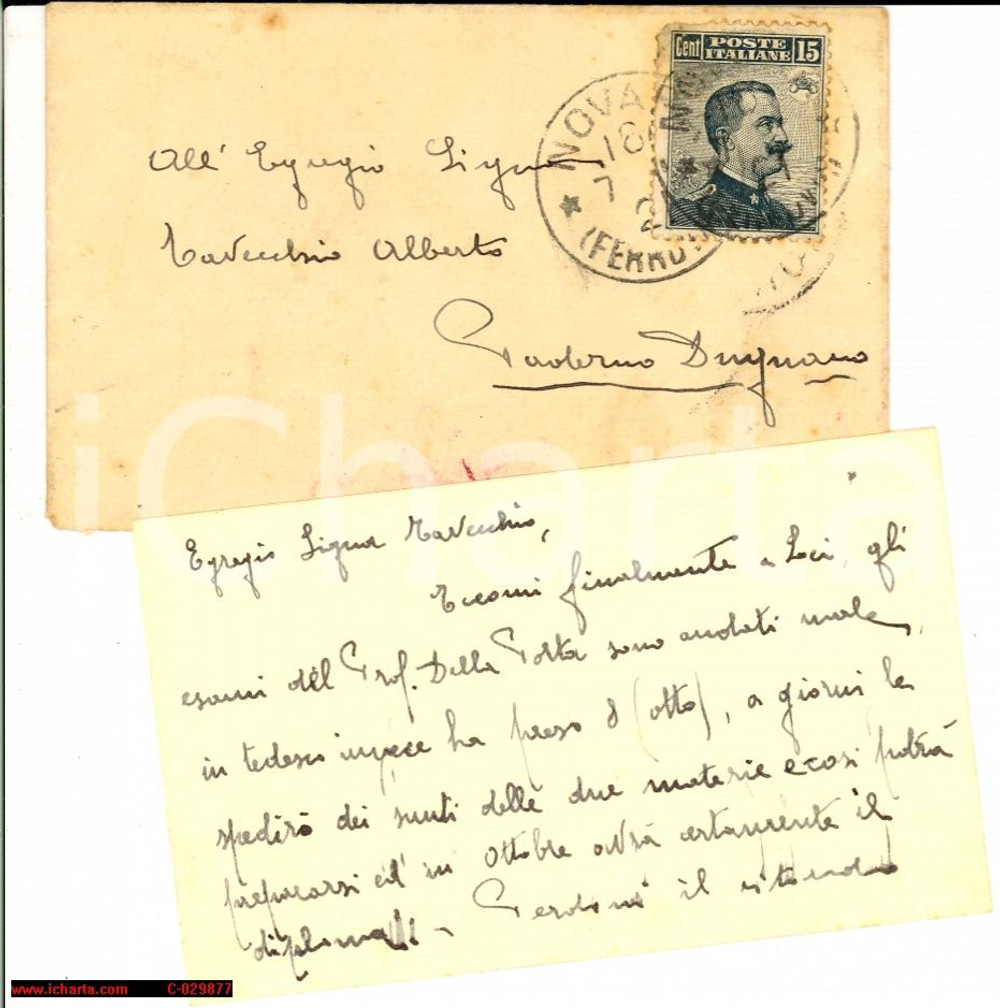 Cent POSTE ITALIANE 15
NOVA
18
7
2
(FERRO
All' Egregio Signor
Tavecchio Alberto
Paderno Dugnano
iCharta
Egregio Signor Tavecchio,
Eccomi finalmente a Lei, gli
esami del Prof. Della Porta sono andati male,
in tedesco invece ha preso 8 (otto), a giorni le
spedirò dei sunti delle due materie e così potrà
prepararsi ed in Ottobre avrà certamente il
diploma. - Perdoni il ritardo
www.icharta.com C-029877